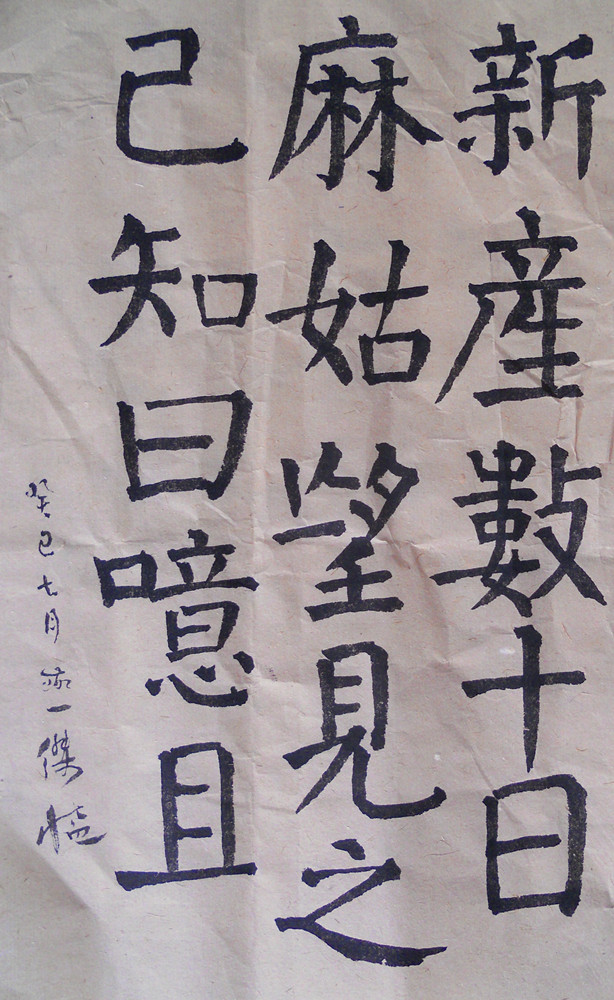 新産數十日
麻姑望見之
已知曰噫且
癸巳七月 一傑